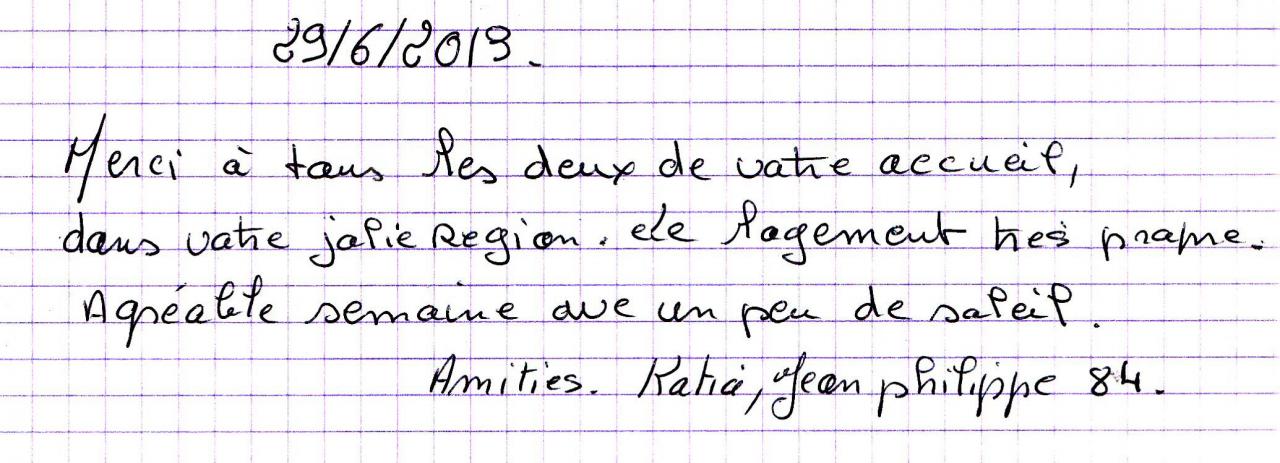 29/6/2019.
Merci à tous les deux de votre accueil,
dans votre jolie Region. Le logement tres propre.
Agréable semaine ave un peu de soleil.
Amities. Katia, Jean philippe 84.